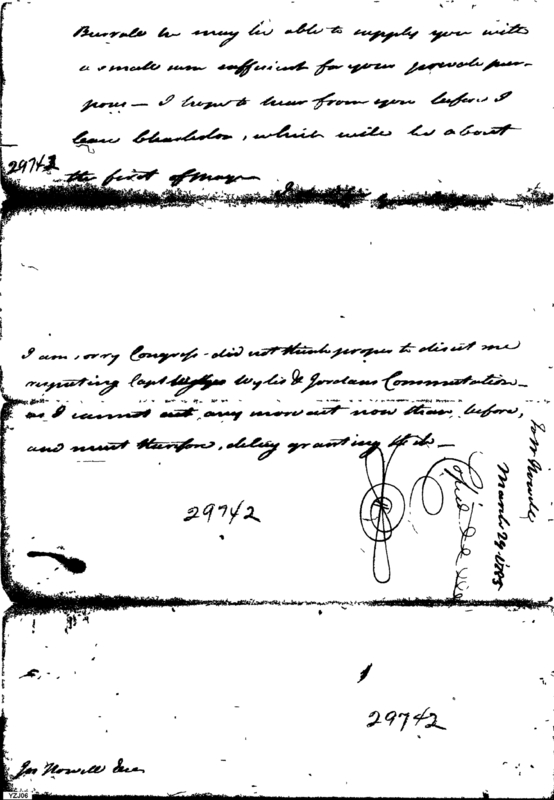 Burrale he may be able to supply you with
a small sum sufficient for your private pur-
poses — I hope to hear from you before I
leave Charleston, which will be about
29742
the first of May
I am sorry Congress did not think proper to direct me
respecting Capt Wylie & Jordans Commutation —
as I cannot act any more out now than before,
and must therefore, delay granting it —
Copied
Jos Howell
March 29 1785
29742
29742
Jos Howell Esqr
YZJ06